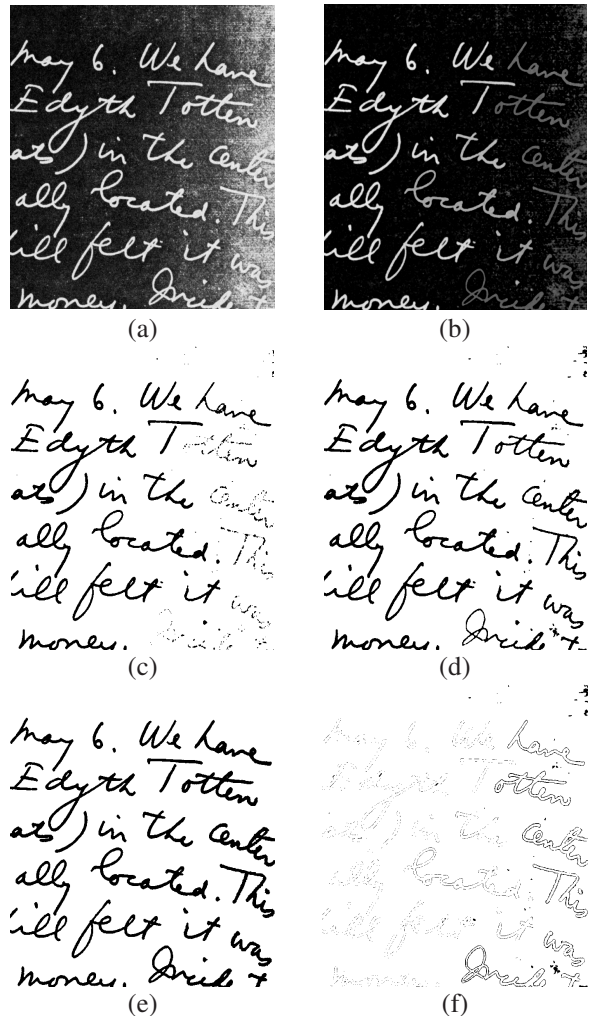 may 6. We have
Edyth Totten
ats) in the center
ally located. This
ill felt it was
money. Inside t
(a)
may 6. We have
Edyth Totten
ats) in the center
ally located. This
ill felt it was
money. Inside t
(b)
may 6. We have
Edyth Totten
ats) in the center
ally located. This
ill felt it was
money. Inside t
(c)
may 6. We have
Edyth Totten
ats) in the center
ally located. This
ill felt it was
money. Inside t
(d)
may 6. We have
Edyth Totten
ats) in the center
ally located. This
ill felt it was
money. Inside t
(e)
may 6. We have
Edyth Totten
ats) in the center
ally located. This
ill felt it was
money. Inside t
(f)